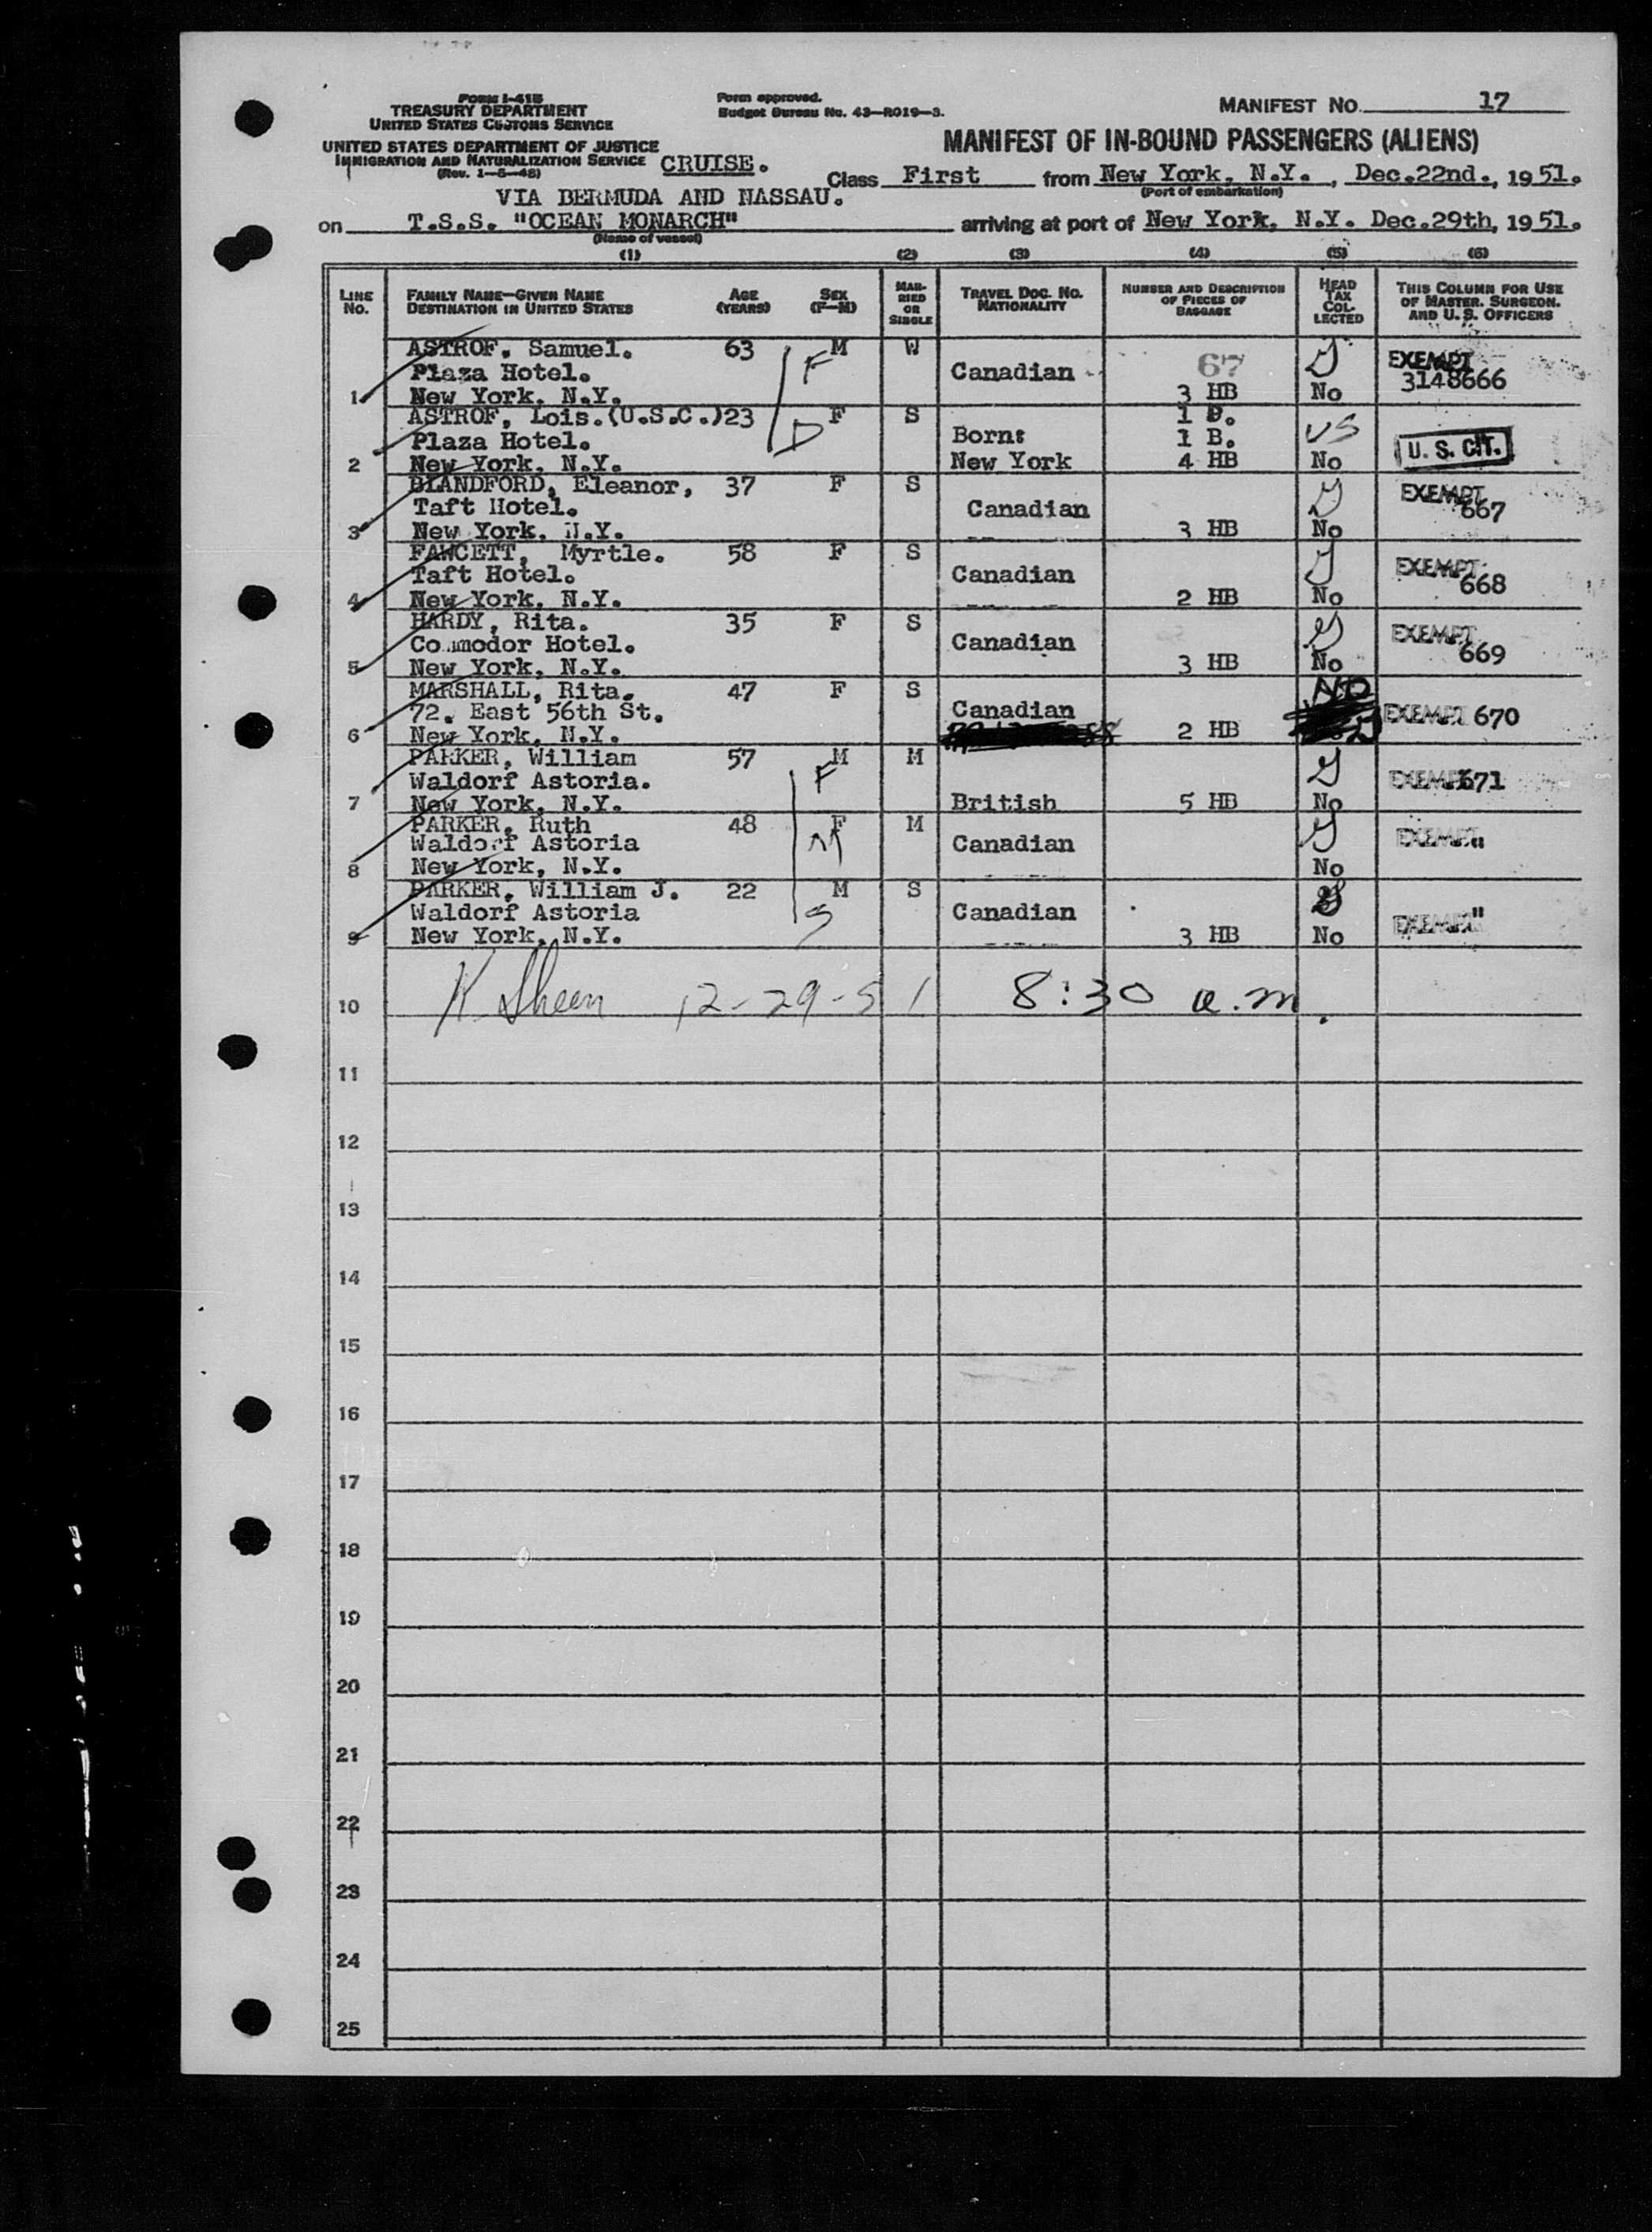 Form I-415
TREASURY DEPARTMENT
UNITED STATES CUSTOMS SERVICE
UNITED STATES DEPARTMENT OF JUSTICE
IMMIGRATION AND NATURALIZATION SERVICE
(Rev. 1-5-48)
Form approved.
Budget Bureau No. 43-R019-3.
MANIFEST NO. 17
MANIFEST OF IN-BOUND PASSENGERS (ALIENS)
CRUISE.
Class First from New York, N.Y., Dec.22nd., 1951.
(Port of embarkation)
VIA BERMUDA AND NASSAU.
on T.S.S. "OCEAN MONARCH" arriving at port of New York, N.Y. Dec.29th, 1951.
(Name of vessel)
(1) (2) (3) (4) (5) (6)
LINE NO. FAMILY NAME—GIVEN NAME DESTINATION IN UNITED STATES AGE (YEARS) SEX (F—M) MARRIED OR SINGLE TRAVEL DOC. NO. NATIONALITY NUMBER AND DESCRIPTION OF PIECES OF BAGGAGE HEAD TAX COLLECTED THIS COLUMN FOR USE OF MASTER, SURGEON, AND U. S. OFFICERS
ASTROF, Samuel. 63 M W
Plaza Hotel. F Canadian 67 EXEMPT
1 New York, N.Y. 3 HB No 3148666
ASTROF, Lois.(U.S.C.)23 F S 1 B.
Plaza Hotel. D Born: 1 B. US U. S. CIT.
2 New York, N.Y. New York 4 HB No
BLANDFORD, Eleanor, 37 F S EXEMPT
Taft Hotel. Canadian 667
3 New York, N.Y. 3 HB No
FAWCETT, Myrtle. 58 F S
Taft Hotel. Canadian EXEMPT 668
4 New York, N.Y. 2 HB No
HARDY, Rita. 35 F S
Commodor Hotel. Canadian EXEMPT 669
5 New York, N.Y. 3 HB No
MARSHALL, Rita. 47 F S NO
72. East 56th St. Canadian EXEMPT 670
6 New York, N.Y. 2 HB
PARKER, William 57 M M
Waldorf Astoria. F EXEMPT 671
7 New York, N.Y. British 5 HB No
PARKER, Ruth 48 F M
Waldorf Astoria M Canadian EXEMPT "
8 New York, N.Y. No
PARKER, William J. 22 M S
Waldorf Astoria S Canadian EXEMPT "
9 New York, N.Y. 3 HB No
10 K. Sheen 12-29-51 8:30 a.m.
11
12
13
14
15
16
17
18
19
20
21
22
23
24
25